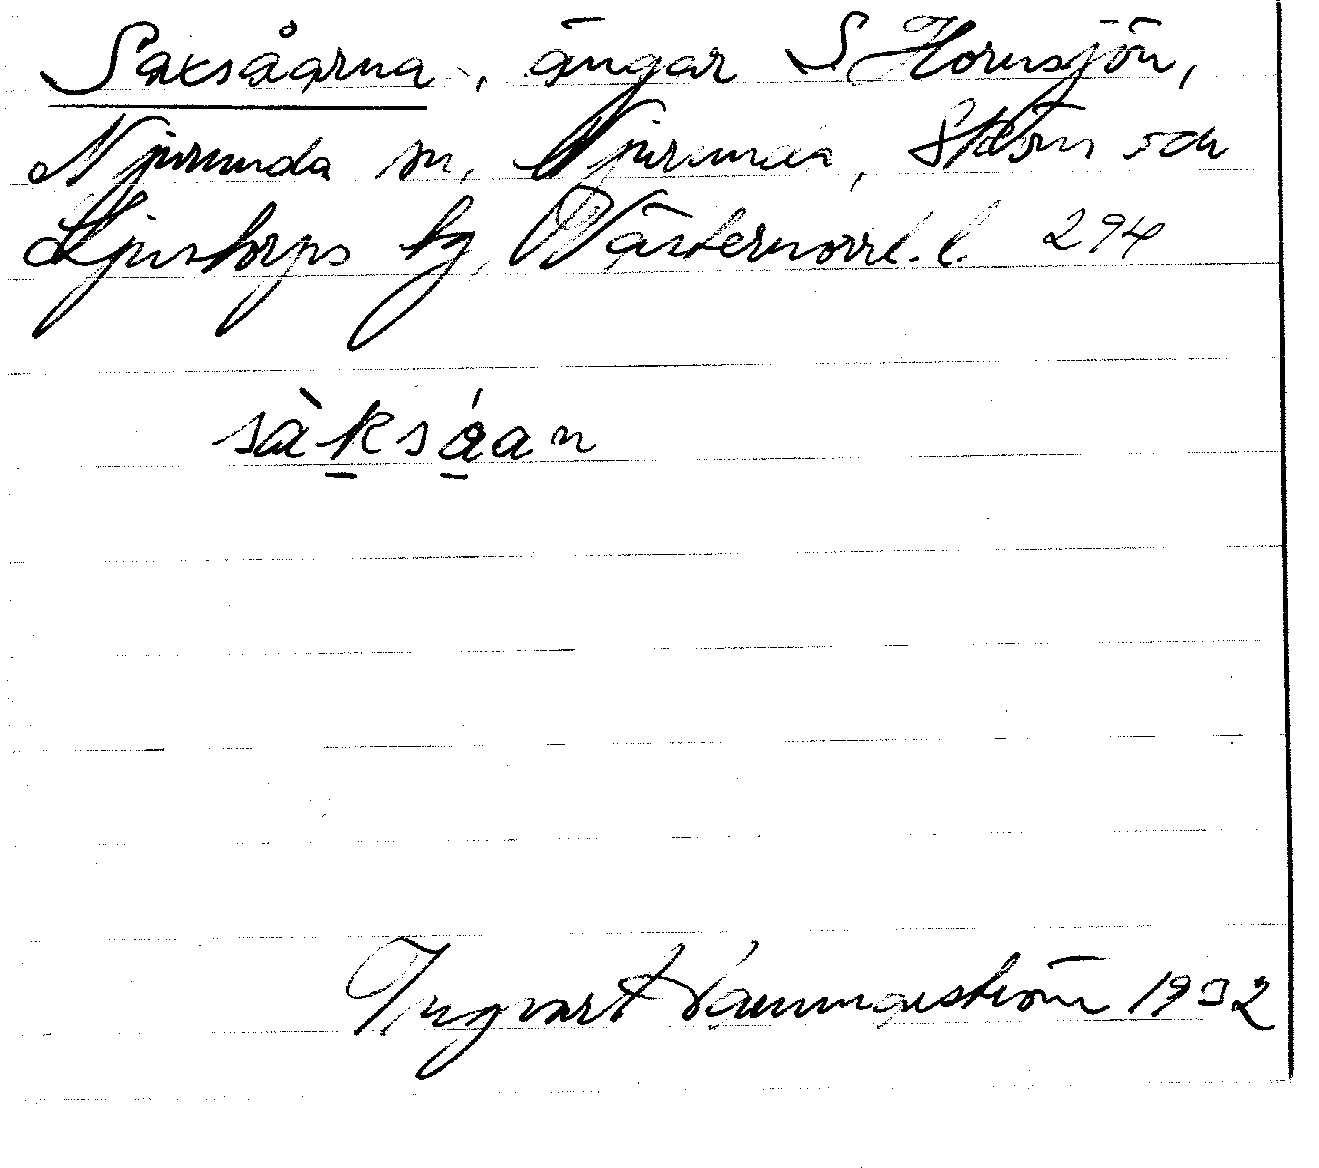 Saxsåarna, ängar S Hornsjön,
Njurunda sn, Njurunda, Sköns och
Ljustorps tg, Västernorrl. l. 294
sàksåan
Ingvart 1932